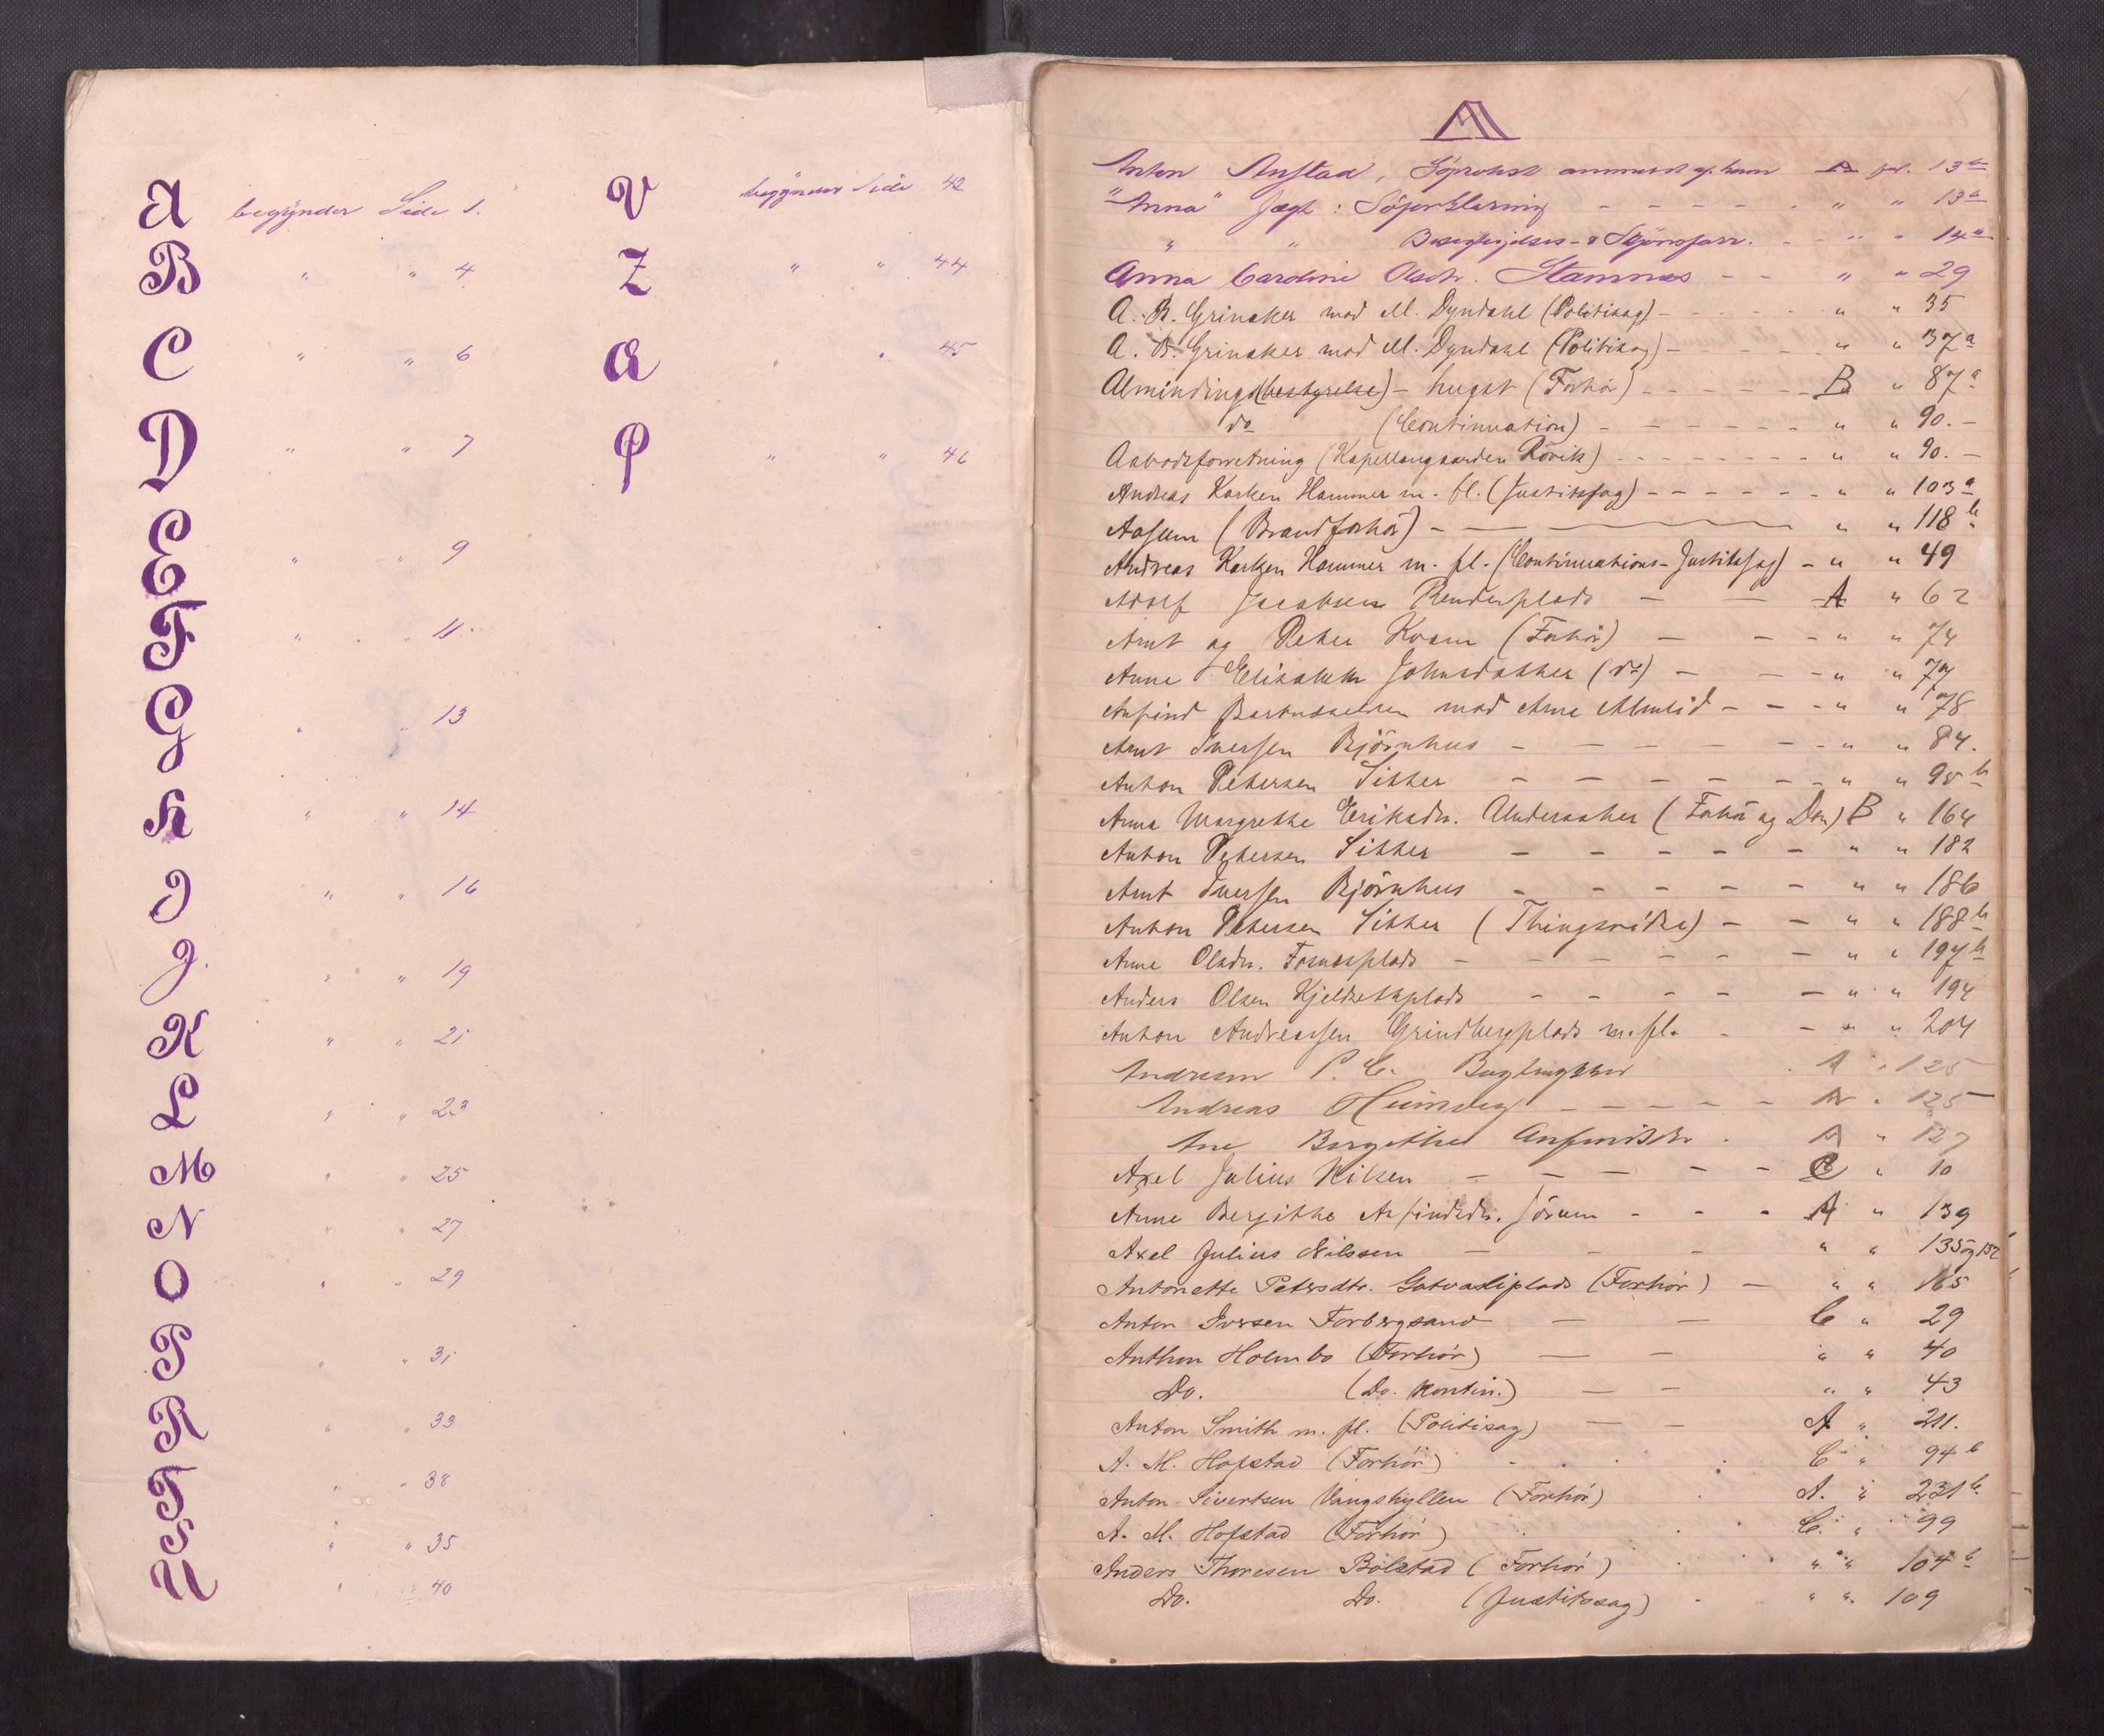 A begynder Side 1.
B " " 4
C " " 6
D " " 7
E " " 9
F " " 11
G " " 13
H " " 14
I " " 16
J. " " 19
K " " 21
L " " 23
M " " 25
N " " 27
O " " 29
P " " 31
R " " 33
T " " 38
S " " 35
U " " 40
V begynder Side 42
Z " " 44
Æ " " 45
Ø " " 46
A
Anton Anstad, Söprotest A fol. 13 b
"Anna" Jægt: Söforklaring - - - - - " " 13 b
" " Besigtigelses- & Skjönsforr. - - " " 14 a
Anna Cardine Olsdtr. Stamnæs - - " " 29
A. B. Grinaker mod M. Dyndahl (Politisag) - - - " " 35
A. B. Grinaker mod M. Dyndahl (Politisag) - - - " " 37 a
Almindings(bestyrelse) - hugst (Forhör) - - - - - B " 87 a
do (Continuation) - - - - - - " " 90. -
Aabodsforretning (Kapellangaarden Rövik) - - - - - " " 90. -
Andreas Karlsen Hammer m. fl. (Justitssag) - - - - - - " " 103 a
Aasum (Brandforhör) - " " 118 b
Andreas Karlsen Hammer m. fl. (Continuations-Justitssag) - " " 49
Adolf Jacobsen - - A " 62
Arnt og Peter Kvam (Forhör) - - - " " 74
Anne Elisabeth Johnsdatter (do) - - - " " 77
Anfind mod Arne - - - " " 78
Arnt Iversen Björnhus - - - - - - " " 84.
Anton Petersen Sitter - - - - - - " " 95 b
Anna Margrethe Eriksdtr. (Forhör og Dom) B " 164
Anton Petersen Sitter - - - - - " " 182
Arnt Iversen Björnhus - - - - - " " 186
Anton Petersen Sitter (Thingsvidne) - - " " 188 b
Anne Olsdtr. Fosnæsplads - - - - - - " " 197 b
Anders Olsen - - - - - " " 194
Anton Andreassen Grindbergplads m. fl. - - " " 204
Andresen P. C. A " 125
Andreas - - - - - A " 125
Ane Bergithe Anfindsdtr. A " 127
Axel Julius Nilsen - - - - - C " 10
Anne Bergitte Anfindsdr. Jörum - - - A " 139
Axel Julius Nilssen - - - " " 135 og 152
Antonette Petersdtr. (Forhör) - " " 165
Anton Iversen Forbergsand - - C " 29
Anthon Holmbo (Forhör) - - " " 40
Do. (Do. Kontin.) - - " " 43
Anton Smith m. fl. (Politisag) - - A " 211.
A. M. Hofstad (Forhör) C " 94 b
Anton Sivertsen Vangshyllen (Forhör) A. " 231 b
A. M. Hofstad (Forhör) C. " 99
Anders Thoresen Bölstad (Forhör) " " 104 b
Do. Do. (Justitssag) " " 109